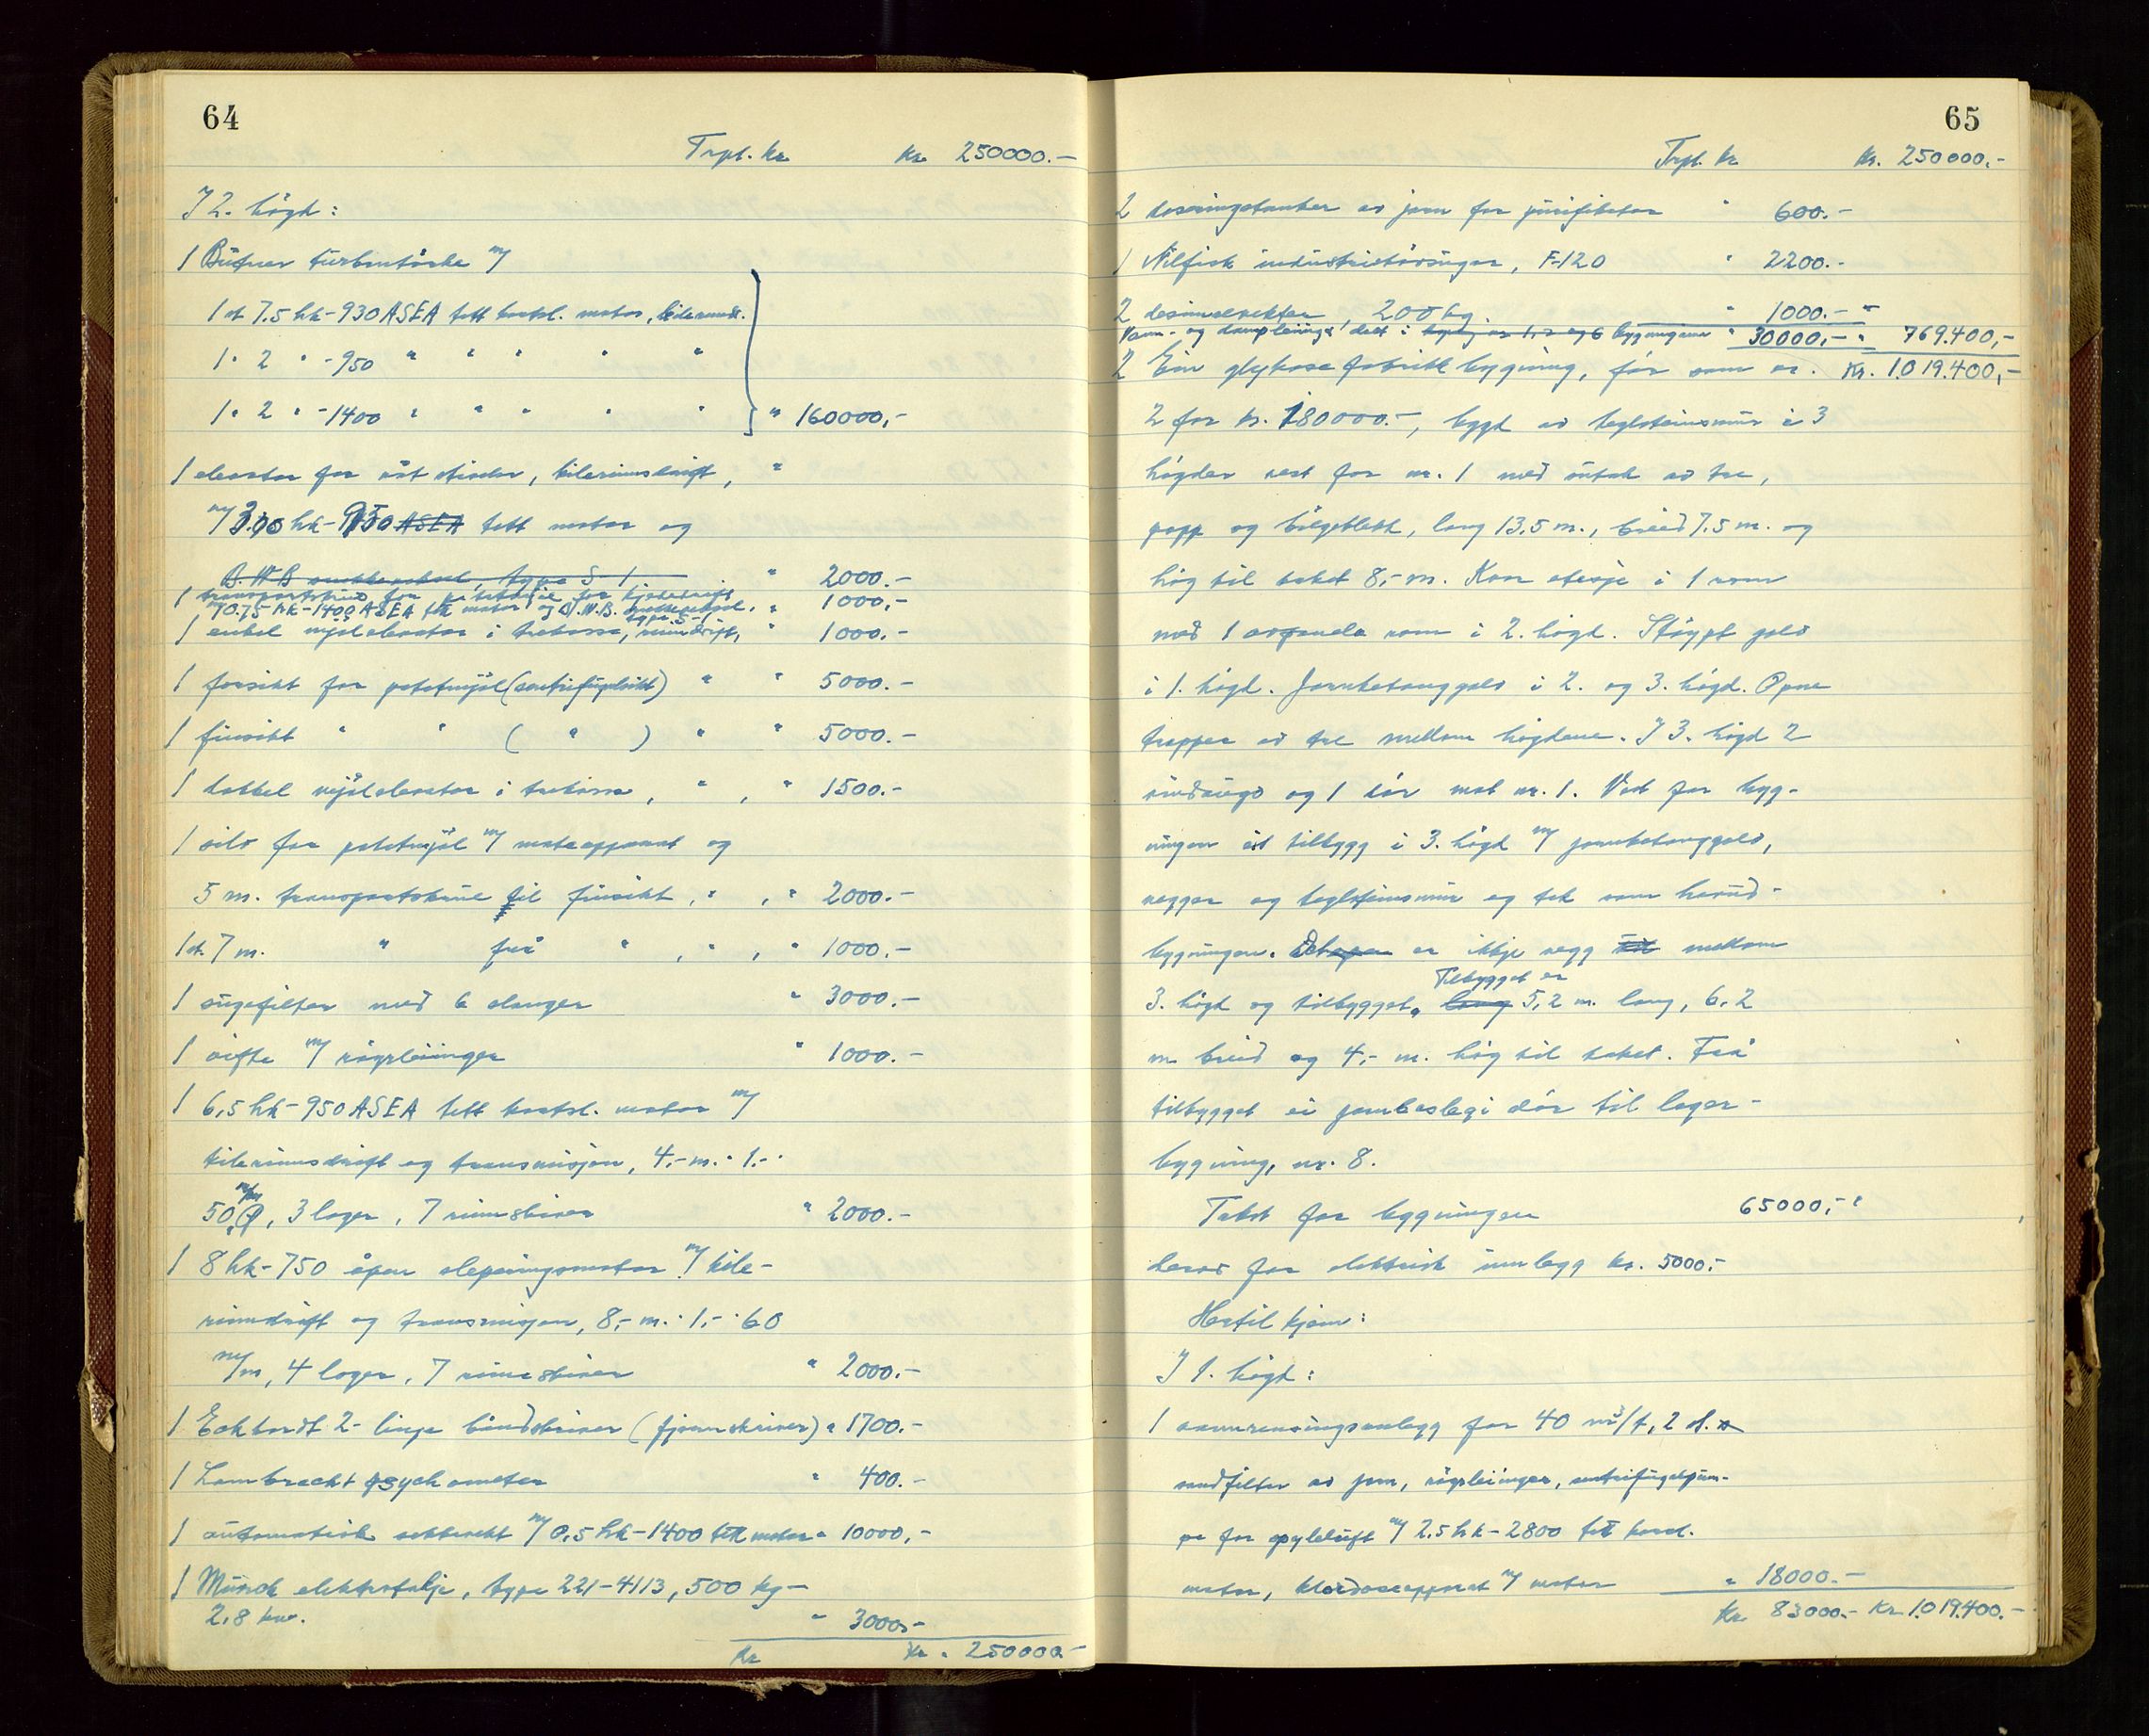 64
Trpt. kr. kr. 250000.-
I 2. høgd:
1 Büttner turbintørke m/
1 st 7.5 hk - 930 ASEA tett kortsl. motor, kileremdr.
1 " 2 " - 950 " " " " "
1 " 2 " - 1400 " " " " " " 160000,-
1 elevator for våt stivelse, kileremsdrift, "
m/ 3.0 hk - 950 ASEA tett motor og
B.W.B snekkeveksel, type S-1 " 2000.-
1 transportskrue for potetmjøl for kjededrift
m/ 0.75 hk - 1400 ASEA tett motor og B.W.B. snekkeveksel, type S-1 " 1000,-
1 enkel mjølelevator i trekasse, reimdrift, " 1000.-
1 forsikt for potetmjøl (sentrifugalsikt) " " 5000.-
1 finsikt " " ( " ) " " 5000.-
1 dobbel mjølelevator i trekasse, " , " 1500.-
1 silo for potetmjøl m/ mateapparat og
5 m. transportskrue til finsikt, " , " 2000.-
1 st. 7 m. " frå " , " , " 1000.-
1 sugefilter med 6 slanger " 3000.-
1 vifte m/ røyrleiinger " 1000.-
1 6,5 hk - 950 ASEA tett kortsl. motor m/
kileremsdrift og transmisjon, 4,- m. · 1.- ·
50 m/m Ø, 3 lager, 7 reimskiver " 2000.-
1 8 hk - 750 åpen sleperingsmotor m/ kile-
reimdrift og transmisjon, 8,- m. · 1,- · 60
m/m, 4 lager, 7 reimskiver " 2000.-
1 Eckhardt 2-linje båndskriver (fjernskriver) " 1700.-
1 Lambrecht psychometer " 400.-
1 automatisk sekkevekt m/ 0,5 hk - 1400 tett motor " 10000,-
1 Munck elektrotalje, type 221-4113, 500 kg -
2,8 kw. " 3000,-
kr kr. 250000.-
65
Trpt. kr kr. 250000.-
2 doseringstanker av jern for purifikator " 600.-
1 Nilfisk industristøvsuger, F-120 " 2200.-
2 desimalvekter, 200 kg. " 1000.- "
Vann- og dampleiinger dels i bygning nr 1, 2 og 6 bygningene " 30000,- " 769.400,-
2 Ein glykosefabrikkbygning, før som nr. Kr. 1.019.400,-
2 for kr. 180000.-, bygd av teglsteinsmur i 3
høgder vest for nr. 1 med untak av tre,
papp og bølgeblekk, lang 13,5 m., breid 7.5 m. og
høg til taket 8,- m. Kvar etasje i 1 rom
med 1 avpanela rom i 2. høgd. Støypt golv
i 1. høgd. Jarnbetonggolv i 2. og 3. høgd. Opne
trapper av tre mellom høgdene. I 3. høgd 2
vindaugo og 1 dør mot nr. 1. Vest for byg-
ningen eit tilbygg i 3. høgd m/ jarnbetonggolv,
vegger og teglsteinsmur og tak som hovud-
bygningen. Det er ikkje vegg mellom
3. høgd og tilbygget. Tilbygget er lang 5,2 m. lang, 6,2
m. breid og 4,- m. høg til taket. Frå
tilbygget ei jernbeslegi dør til lager-
bygning, nr. 8.
Takst for bygningen 65000,- "
derav for elektrisk innlegg kr. 5000.-
Hertil kjem:
I 1. høgd:
1 vannrensingsanlegg for 40 m³/t, 2 st.
sandfilter av jern, røyrleiinger, sentrifugalpum-
pe for spyleluft m/ 2.5 hk - 2800 tett kortsl.
motor, klordoseapparat m/ motor " 18000.-
Kr 83000.- Kr 1.019.400.-